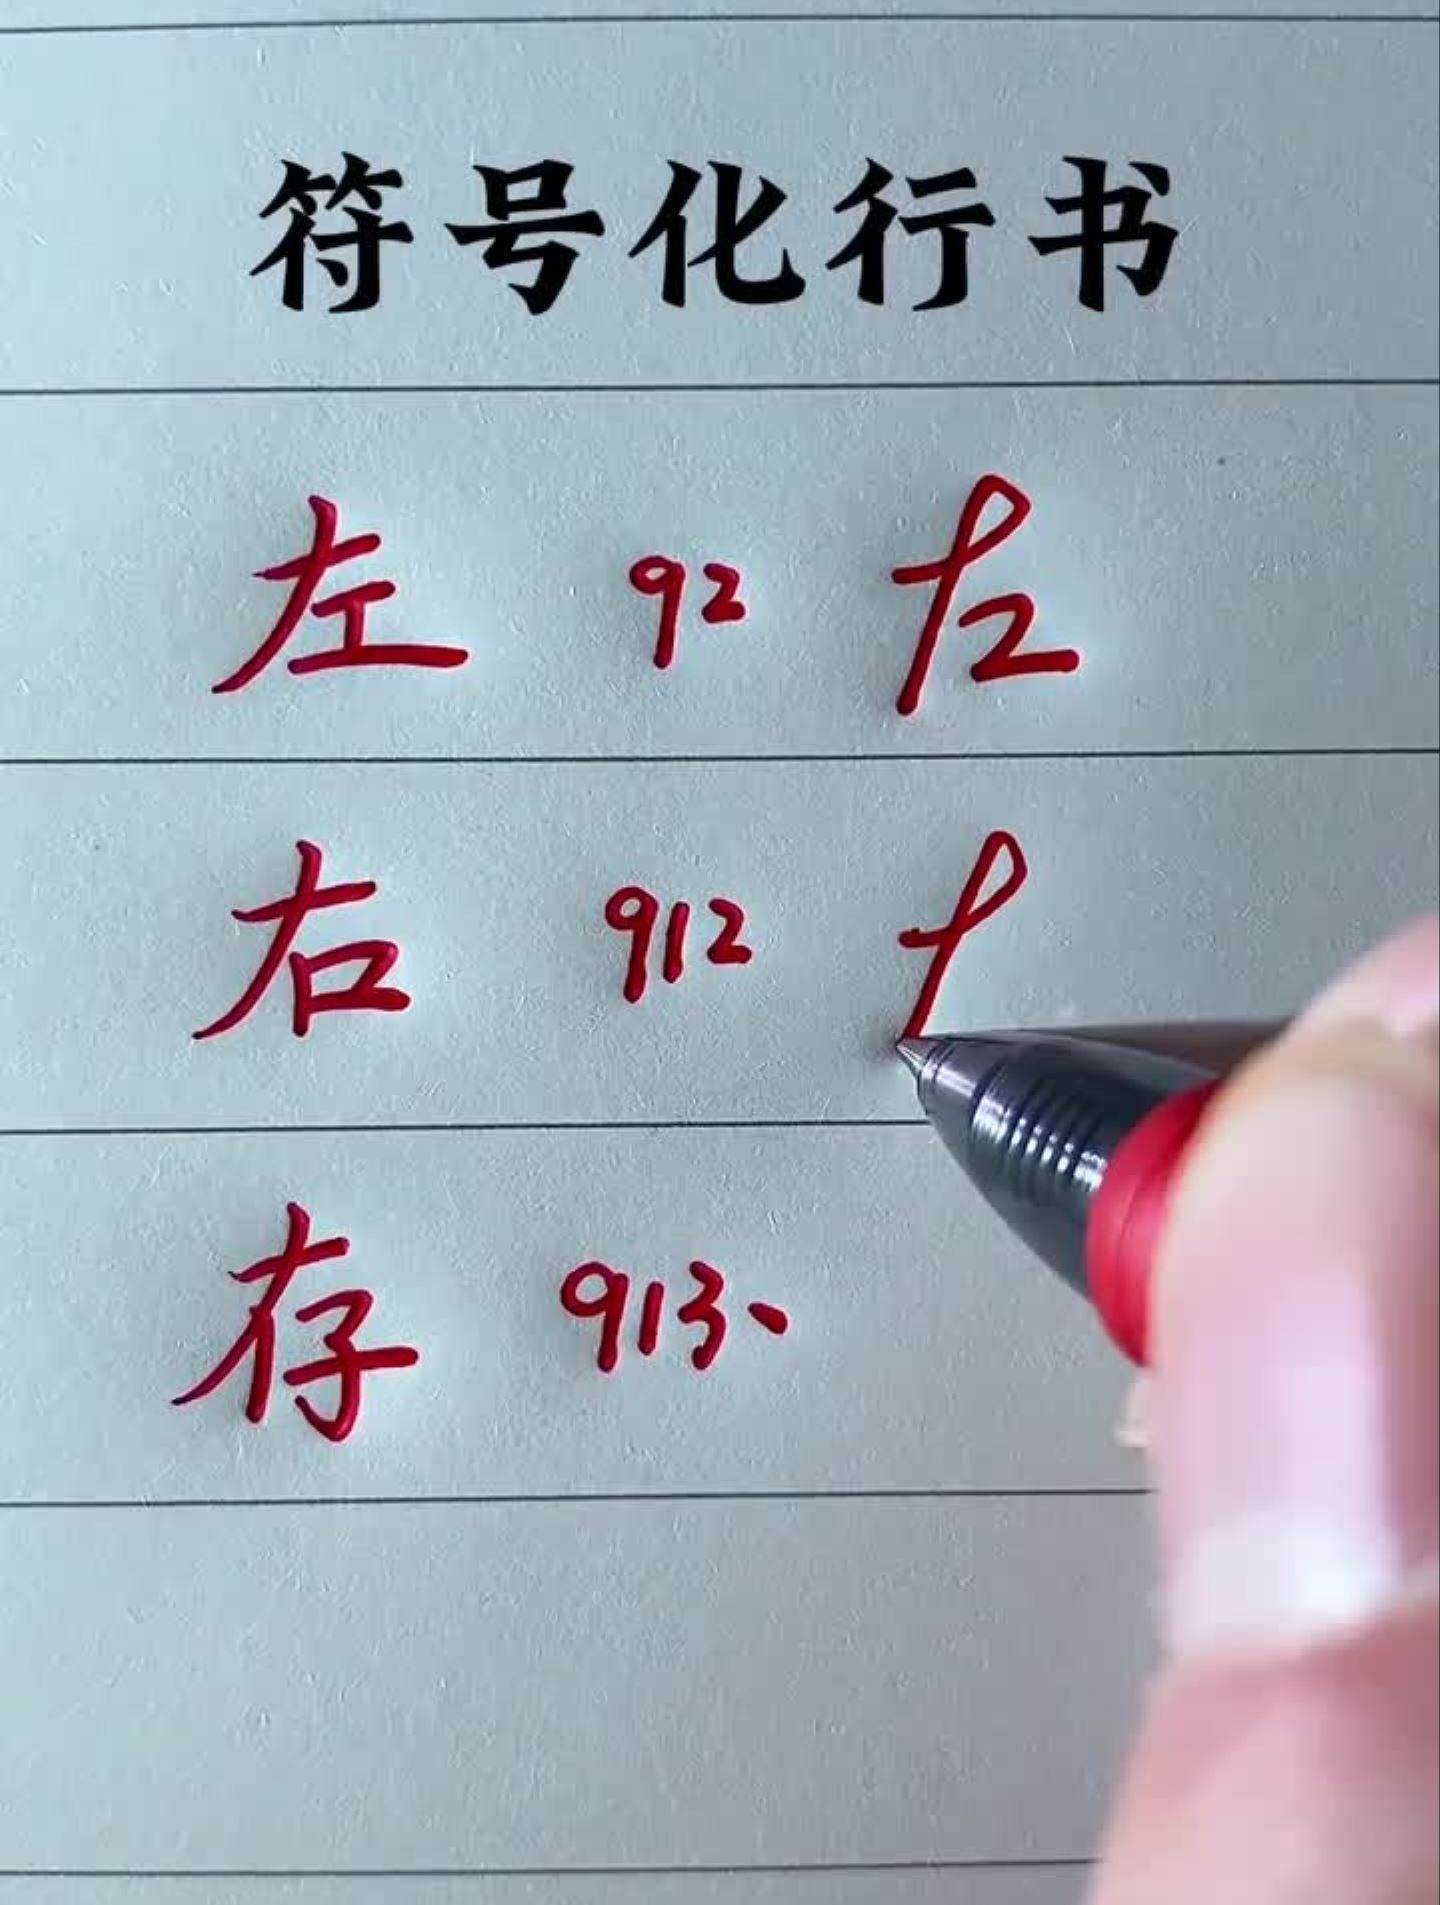 符号化行书
左 92 左
右 912
存 913、